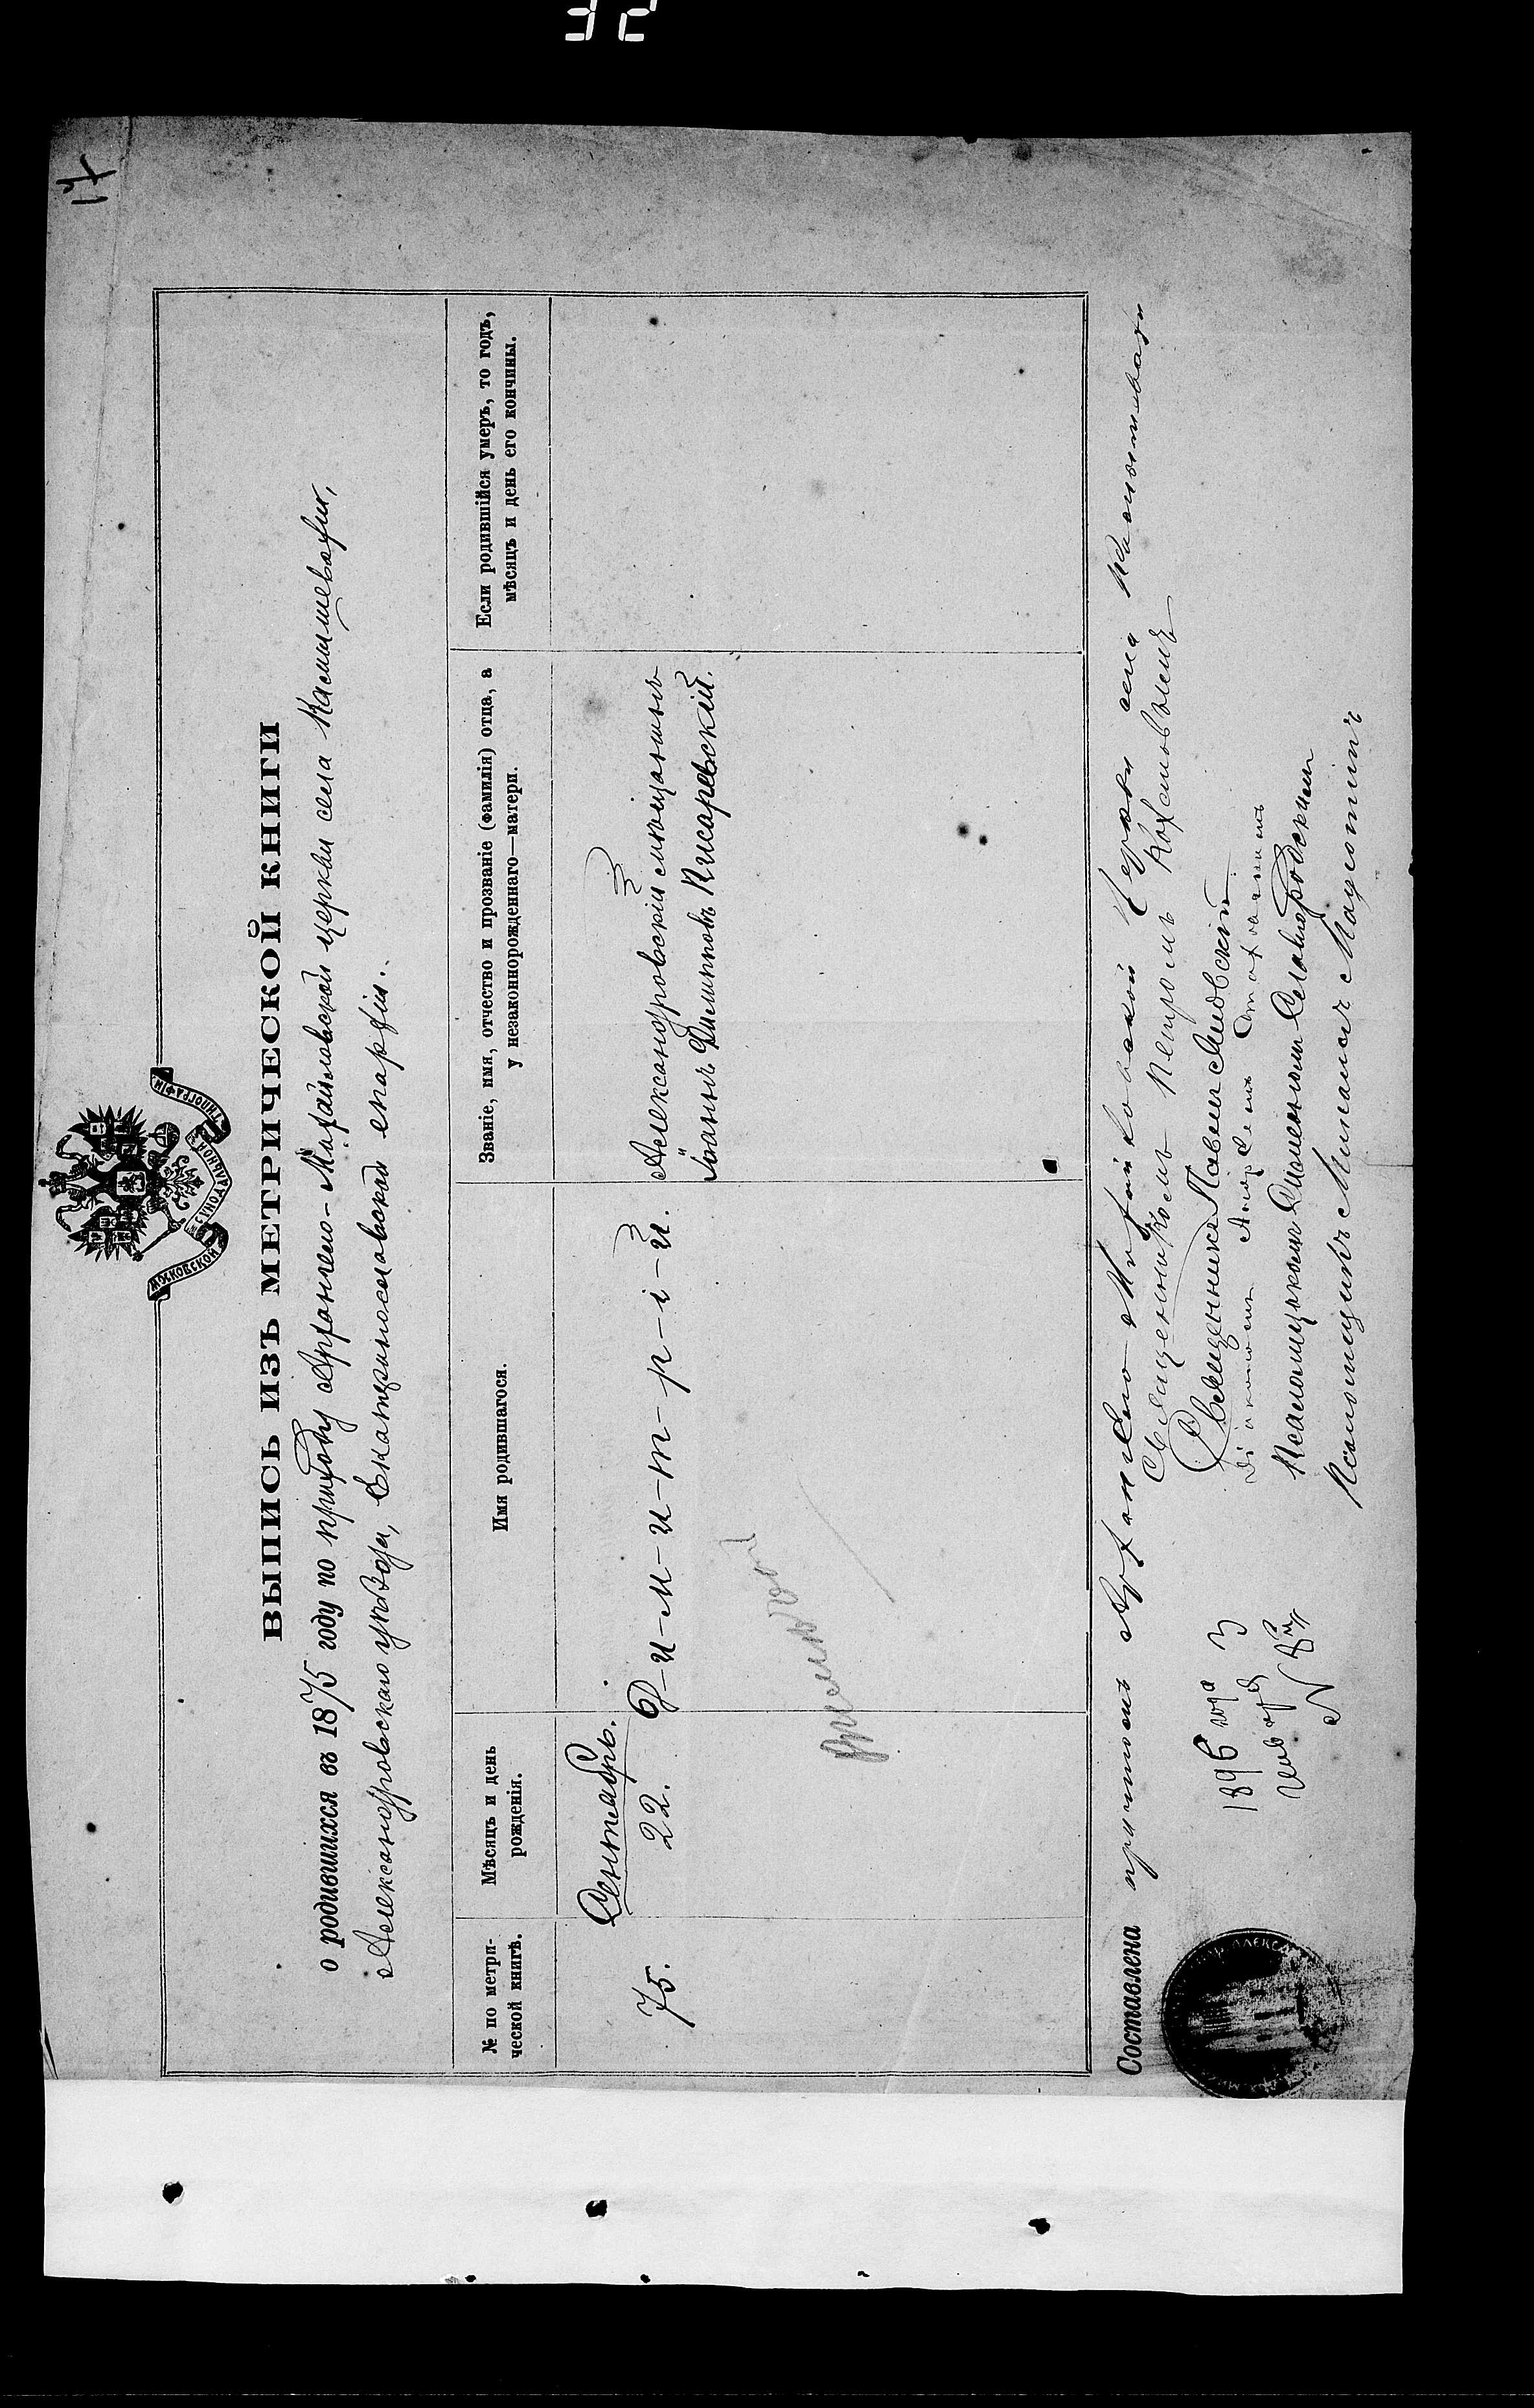 32
17
МОСКОВСКОЙ СѴНОДАЛЬНОЙ ТИПОГРАФІИ.
ВЫПИСЬ ИЗЪ МЕТРИЧЕСКОЙ КНИГИ
о родившихся въ 1875 году по приходу Архангело-Михайловской церкви села Камышевахи,
Александровскаго уѣзда, Екатеринославской епархіи.
№ по метри-
ческой книгѣ.
Мѣсяцъ и день
рожденія.
Имя родившагося.
Званіе, имя, отчество и прозваніе (фамилія) отца, а
у незаконнорожденнаго—матери.
Если родившійся умеръ, то годъ,
мѣсяцъ и день его кончины.
Сентябрь.
75.
22.
Д-и-м-и-т-р-і-й.
Александровскій мѣщанинъ
Іоаннъ Филипповъ Писаревскій.
Составлена причтомъ Архангело-Михайловской Церкви села Камышевахи
Священникомъ Петромъ Кохановымъ
1896 года
Священникъ Павелъ
Діакономъ Андреемъ
января 3
Псаломщикомъ
№ 8й
Псаломщикъ Михаилъ